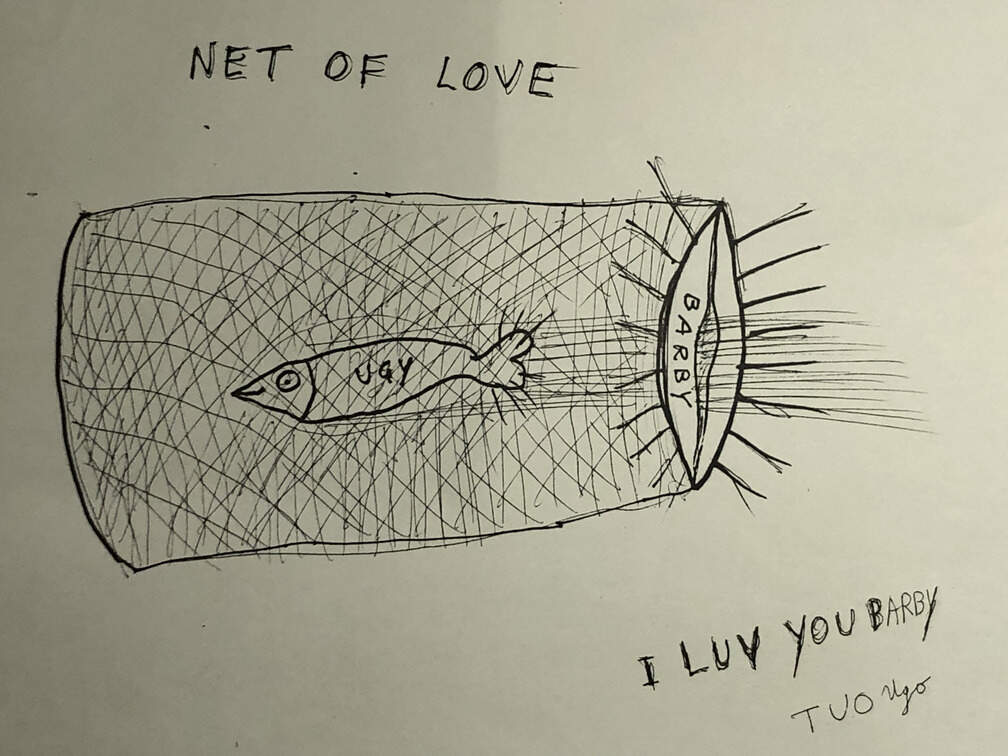 NET OF LOVE
BARBY
UGY
I LUV YOU BARBY
TUO Ugo